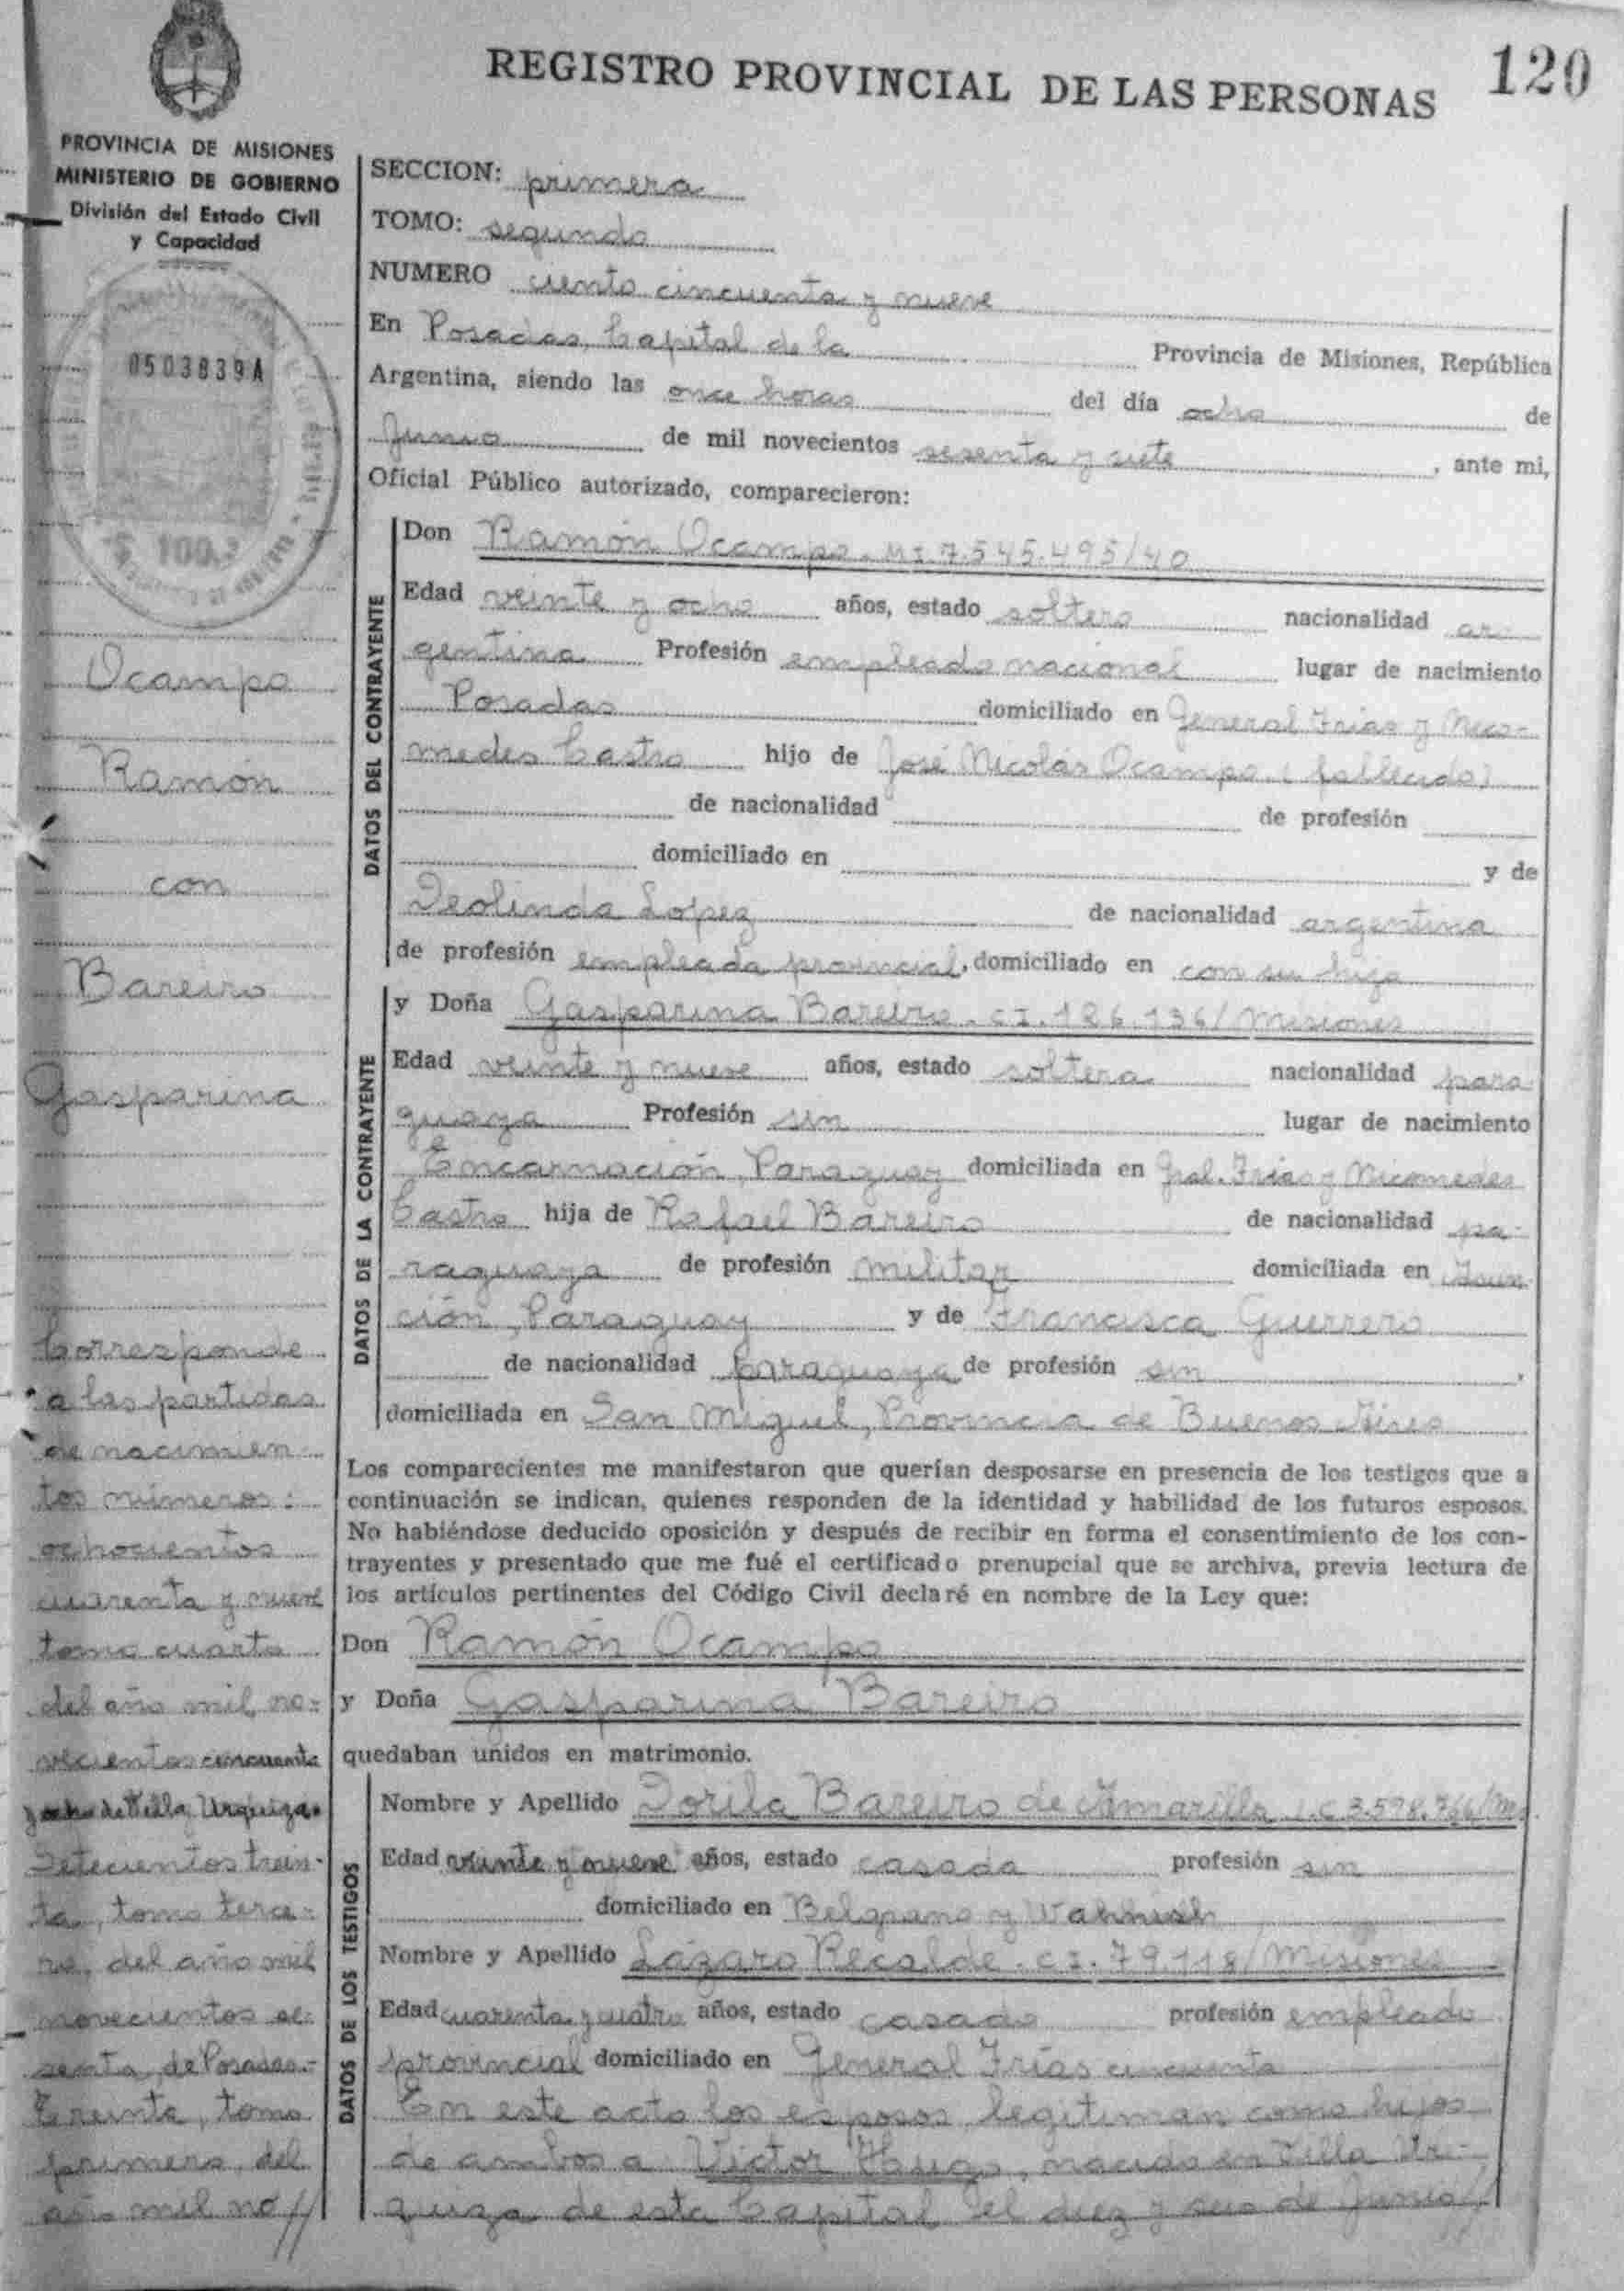 REGISTRO PROVINCIAL DE LAS PERSONAS
120
PROVINCIA DE MISIONES
MINISTERIO DE GOBIERNO
División del Estado Civil
y Capacidad
0503839A
$ 100
Ocampo
Ramón
con
Bareiro
Gasparina
Corresponde
a las partidas
de nacimien
tos números:
ochocientos
cuarenta y nueve
tomo cuarto
del año mil no-
vecientos cincuenta
y ocho de Villa Urquiza.
Setecientos trein-
ta, tomo terce-
ro, del año mil
novecientos se-
senta, de Posadas.-
Treinta, tomo
primero, del
año mil no//
SECCION: primera
TOMO: segundo
NUMERO ciento cincuenta y nueve
En Posadas, Capital de la Provincia de Misiones, República
Argentina, siendo las once horas del día ocho de
Junio de mil novecientos sesenta y siete, ante mi,
Oficial Público autorizado, comparecieron:
DATOS DEL CONTRAYENTE
Don Ramón Ocampo. MI. 7.545.495/40
Edad veinte y ocho años, estado soltero nacionalidad ar-
gentina Profesión empleado nacional lugar de nacimiento
Posadas domiciliado en General Frías y Nico-
medes Castro hijo de José Nicolás Ocampo (fallecido)
de nacionalidad de profesión
domiciliado en y de
Deolinda Lopez de nacionalidad argentina
de profesión empleada provincial, domiciliado en con su hijo
DATOS DE LA CONTRAYENTE
y Doña Gasparina Bareiro. CI. 186.136/Misiones
Edad veinte y nueve años, estado soltera nacionalidad para
guaya Profesión sin lugar de nacimiento
Encarnación, Paraguay domiciliada en Gral. Frías y Nicomedes
Castro hija de Rafael Bareiro de nacionalidad pa-
raguaya de profesión militar domiciliada en Asun
ción, Paraguay y de Francisca Guerrero
de nacionalidad paraguaya de profesión sin,
domiciliada en San Miguel, Provincia de Buenos Aires
Los comparecientes me manifestaron que querían desposarse en presencia de los testigos que a
continuación se indican, quienes responden de la identidad y habilidad de los futuros esposos.
No habiéndose deducido oposición y después de recibir en forma el consentimiento de los con-
trayentes y presentado que me fué el certificado prenupcial que se archiva, previa lectura de
los artículos pertinentes del Código Civil declaré en nombre de la Ley que:
Don Ramón Ocampo
y Doña Gasparina Bareiro
quedaban unidos en matrimonio.
DATOS DE LOS TESTIGOS
Nombre y Apellido Dorila Bareiro de Amarilla
Edad veinte y nueve años, estado casada profesión sin
domiciliado en Belgrano y
Nombre y Apellido Lázaro Recalde. CI. 79.118/Misiones
Edad cuarenta y cuatro años, estado casado profesión empleado
provincial domiciliado en General Frías cincuenta
En este acto los esposos legitiman como hijos
de ambos a: Victor Hugo, nacido en Villa Ur-
quiza de esta Capital el diez y seis de Junio//